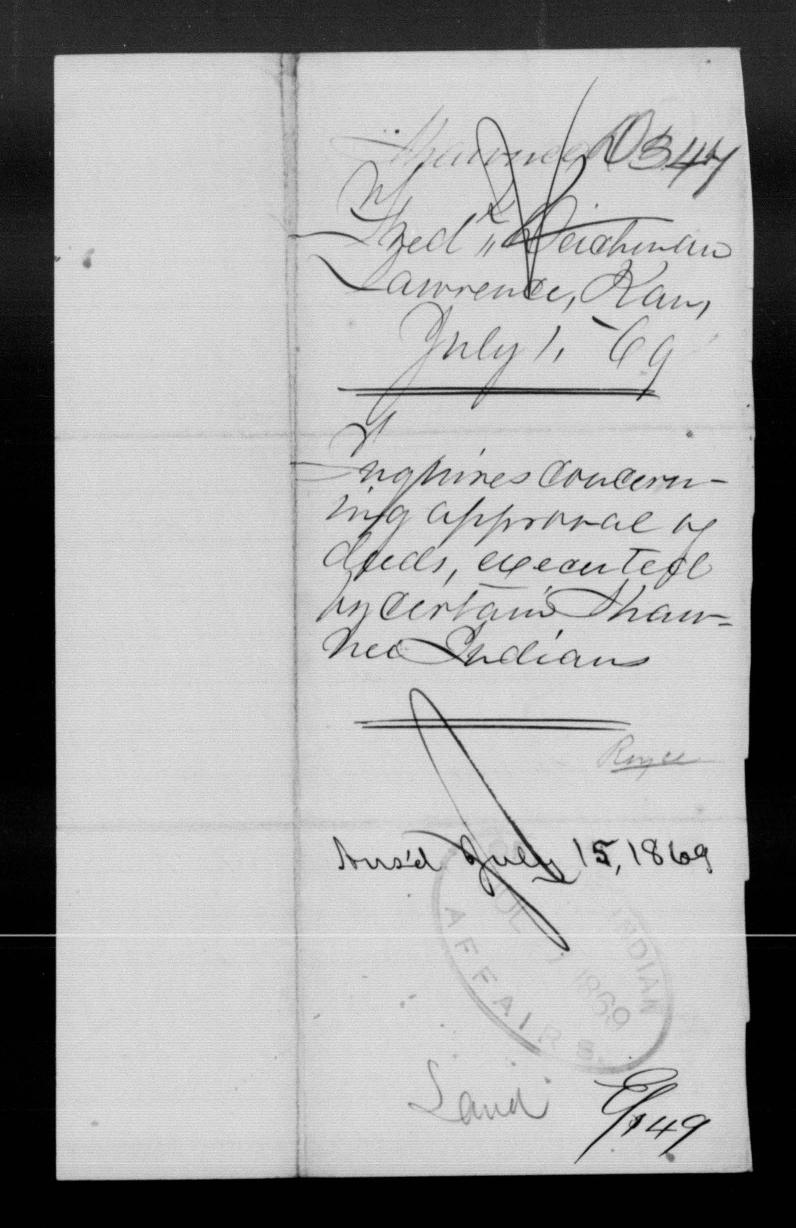 Shawnee D347
Fred'k Deichman
Lawrence, Kan,
July 1, -69
Inquires concern-
ing approval of
deeds, executed
by certain Shaw-
nee Indians
Royce
Ans'd July 15, 1869
INDIAN
JUL 1869
AFFAIRS
Land
E/149